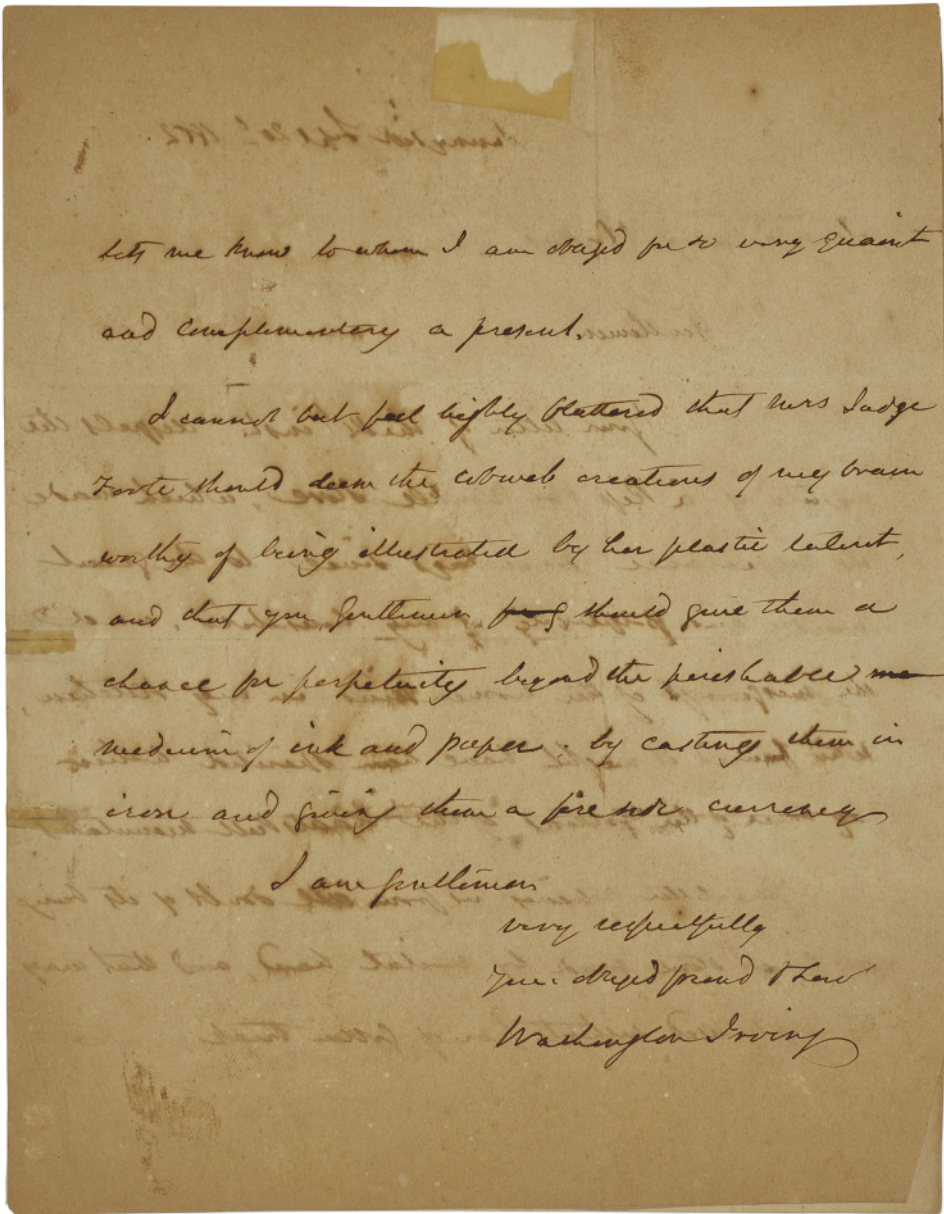 lets me know to whom I am obliged for so very quaint
and complimentary a present.
I cannot but feel highly flattered that Mrs Judge
Foote should deem the cobweb creations of my brain
worthy of being illustrated by her plastic talent,
and that you, gentlemen should give them a
chance for perpetuity beyond the perishable
medium of ink and paper. by casting them in
iron and giving them a fire side currency
I am gentlemen
very respectfully
Your obliged friend &
Washington Irving